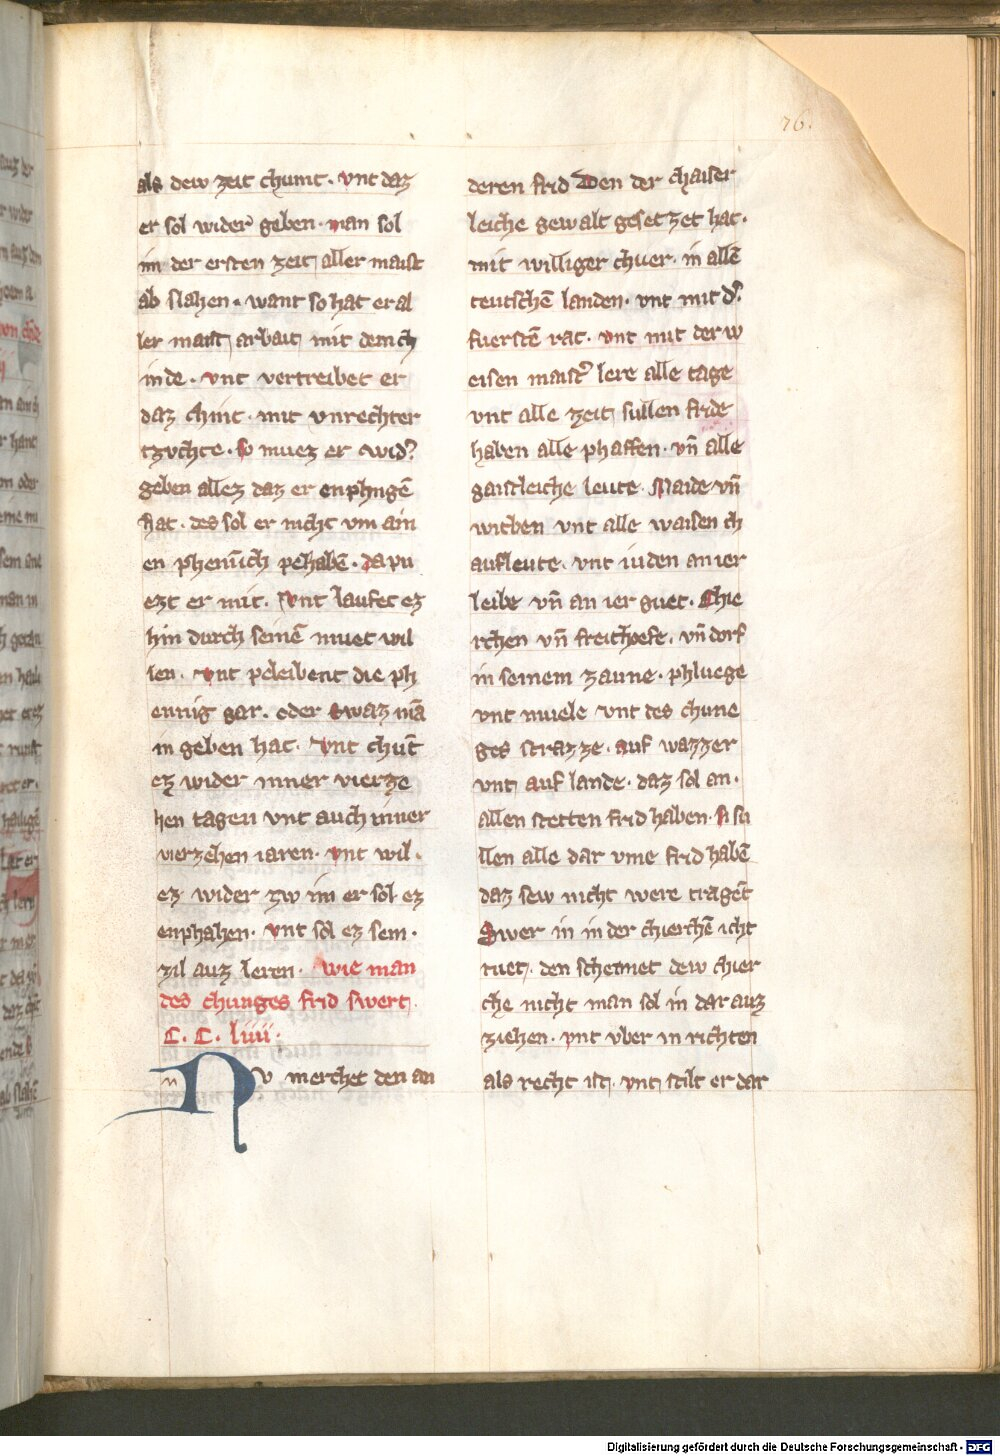 76.
als dew zeit chumt. vnt daz
er sol wider geben. man sol
im der ersten zeit aller maist
ab slahen. want so hat er al
ler maist arbait mit dem ch
inde. vnt vertreibet er
daz chint. mit vnrechter
tzvchte. so muez er wid͛
geben allez daz er enphngē
hat. des sol er nicht vm ain
en phennīch pehabē. da pu
ezt er mit. vnt laufet ez
hin durch seinē muet wil
len. vnt peleibent die ph
ennig gar. oder swaz mā
im geben hat. vnt chūt
ez wider inner vierze
hen tagen vnt auch inner
vierzehen iaren. vnt wil.
ez wider zw im er sol ez
enphahen. vnt sol ez sem.
zil auz leren. wie man
des chunges frid swert.
C. C. liiii.
NV merchet den an
deren frid Den der chaiser
leiche gewalt gesetzet hat.
mit williger chuer. in allē
teutschē landen. vnt mit d͛
fuerstē rat. vnt mit der w
eisen maist͛ lere alle tage
vnt alle zeit sullen fride
haben alle phaffen. vn̄ alle
gaistleiche leute. Maide vn̄
witben vnt alle waisen ch
aufleute. vnt iuden an ier
leibe vn̄ an ier guet. Chie
rchen vn̄ freithoefe. vn̄ dorf
in seinem zaune. phluege
vnt muele vnt des chune
ges strazze. auf wazzer
vnt auf lande. daz sol an.
allen stetten frid haben. Si su
llen alle dar vme frid habē
daz sew nicht were tragēt
Swer in in der chierchē icht
tuet. den schermet dew chier
che nicht man sol in dar auz
ziehen. vnt vber in richten
als recht ist. vnt stilt er dar
Digitalisierung gefördert durch die Deutsche Forschungsgemeinschaft - DFG